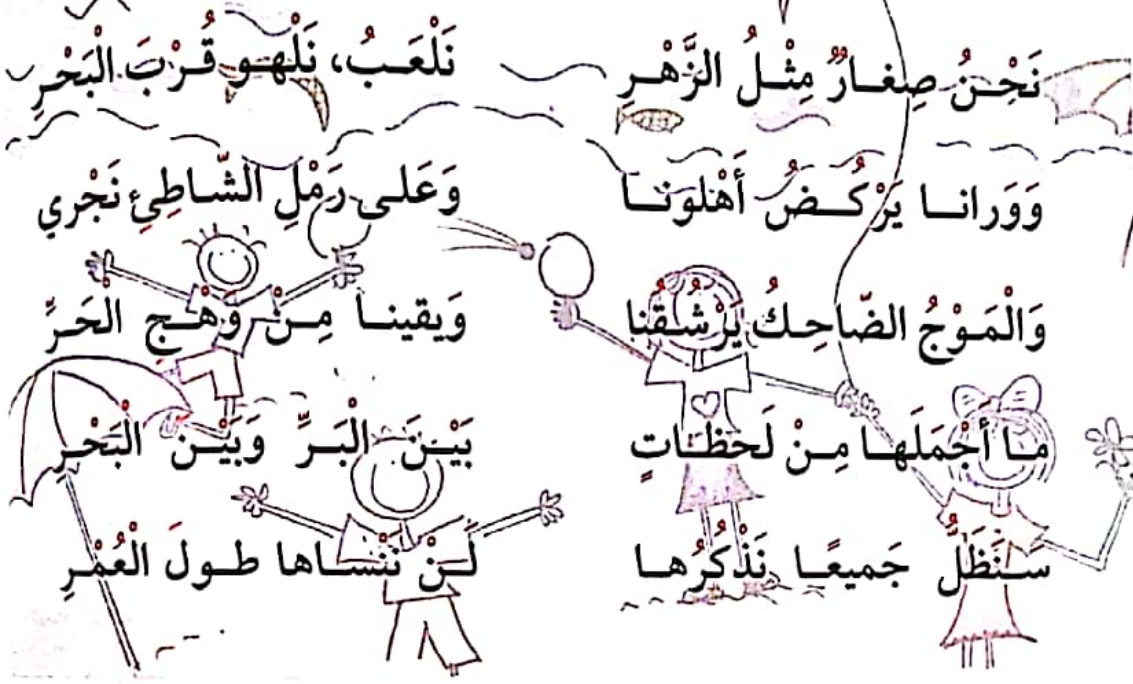 نَحْنُ صِغارٌ مِثْلُ الزَّهْرِ نَلْعَبُ، نَلْهو قُرْبَ الْبَحْرِ
وَوَرانا يَرْكُضُ أَهْلونا وَعَلى رَمْلِ الشّاطِئِ نَجْري
وَالْمَوْجُ الضّاحِكُ يَرْشُقُنا وَيَقينا مِنْ وَهْجِ الْحَرِّ
ما أَجْمَلَها مِنْ لَحَظاتٍ بَيْنَ الْبَرِّ وَبَيْنَ الْبَحْرِ
سَنَظَلُّ جَميعًا نَذْكُرُها لَنْ نَنْساها طولَ الْعُمْرِ